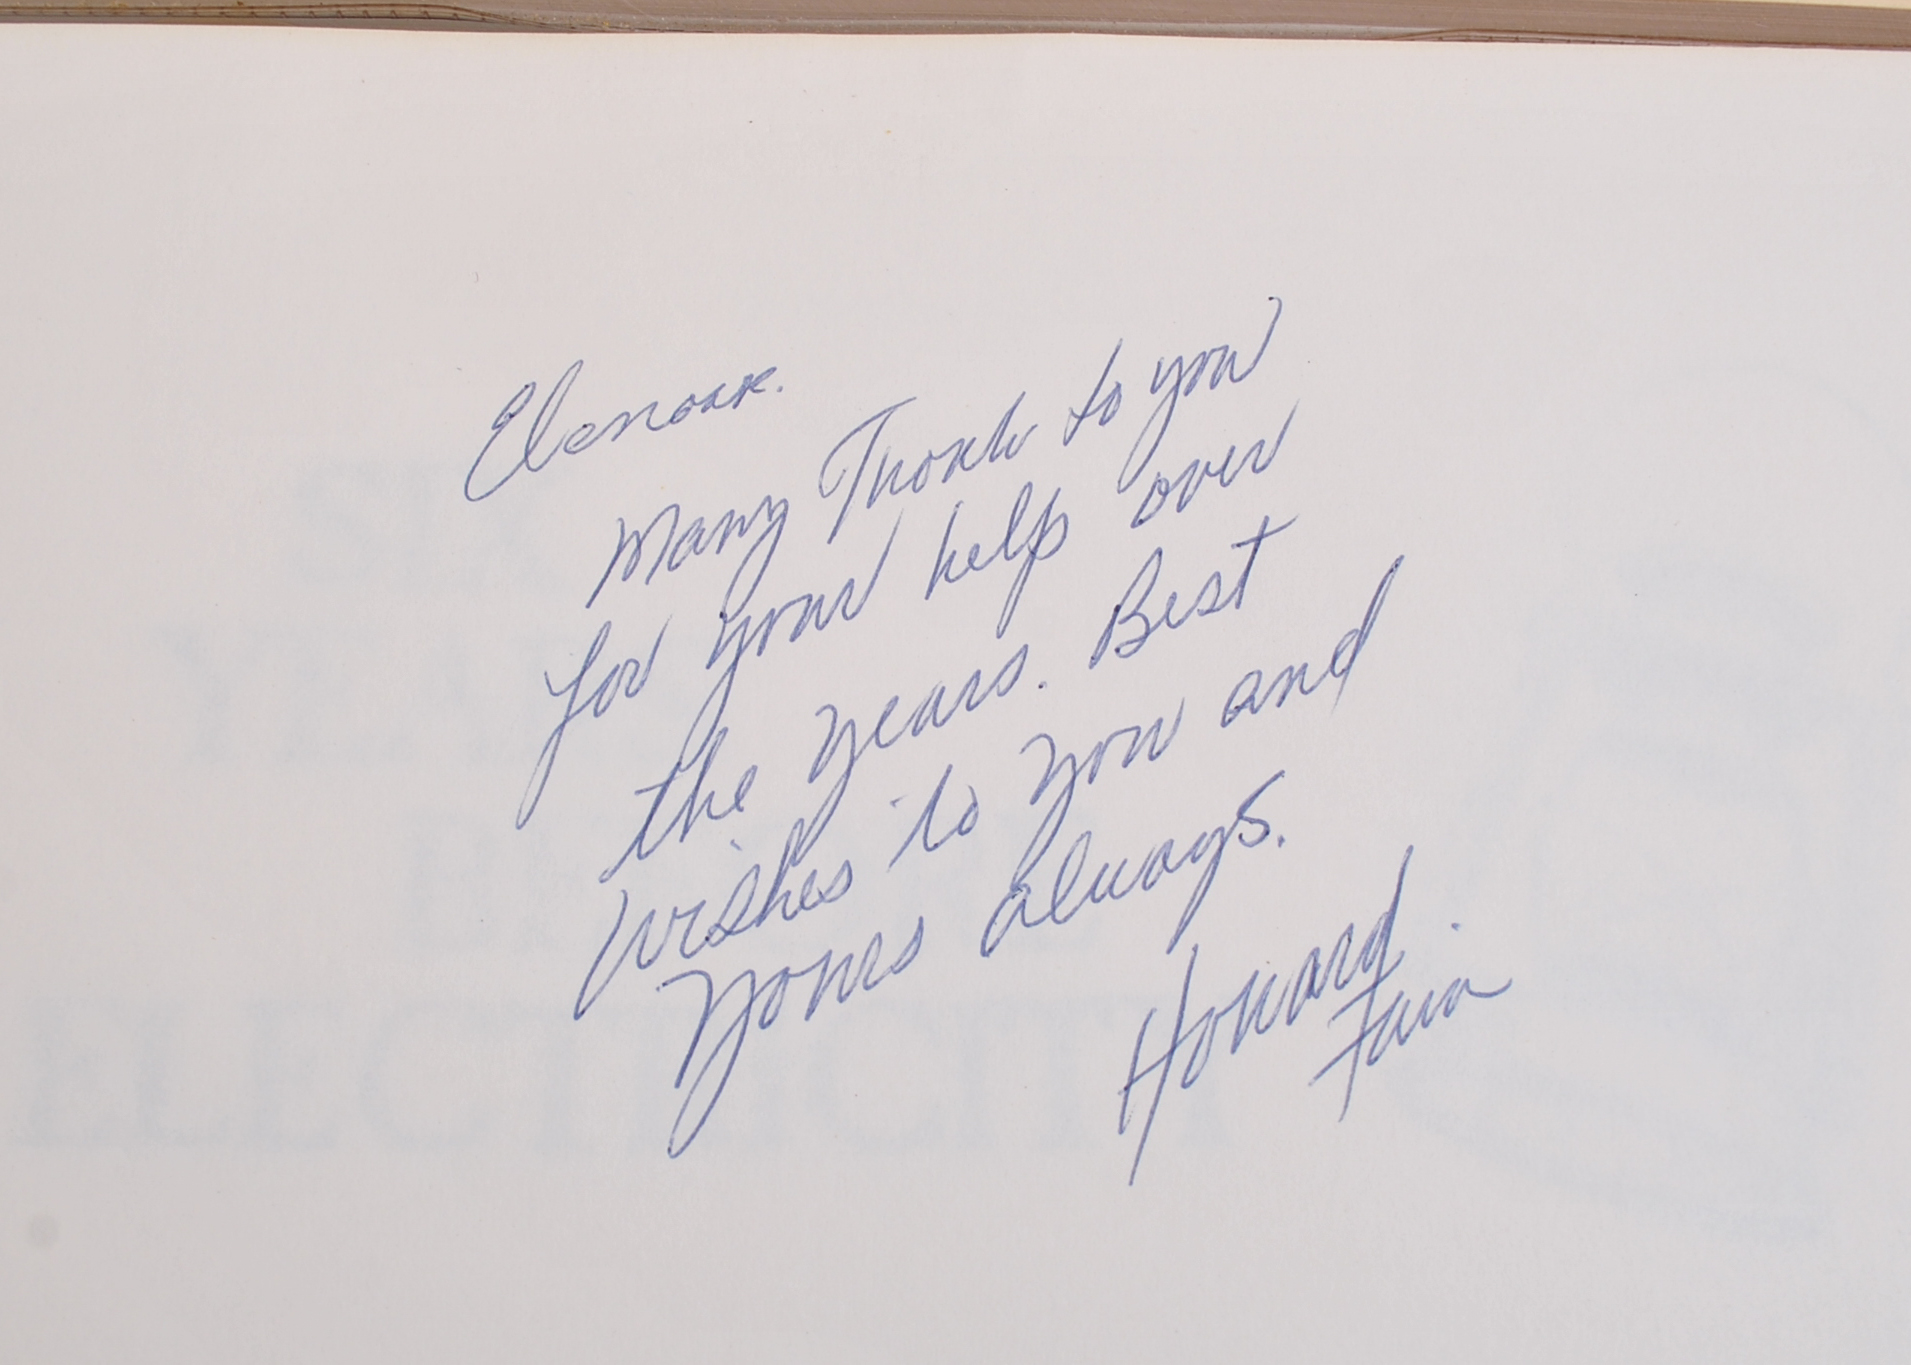 Elenoar.
Many Thank to you
for your help over
the years. Best
wishes to you and
yours always.
Howard
Fain